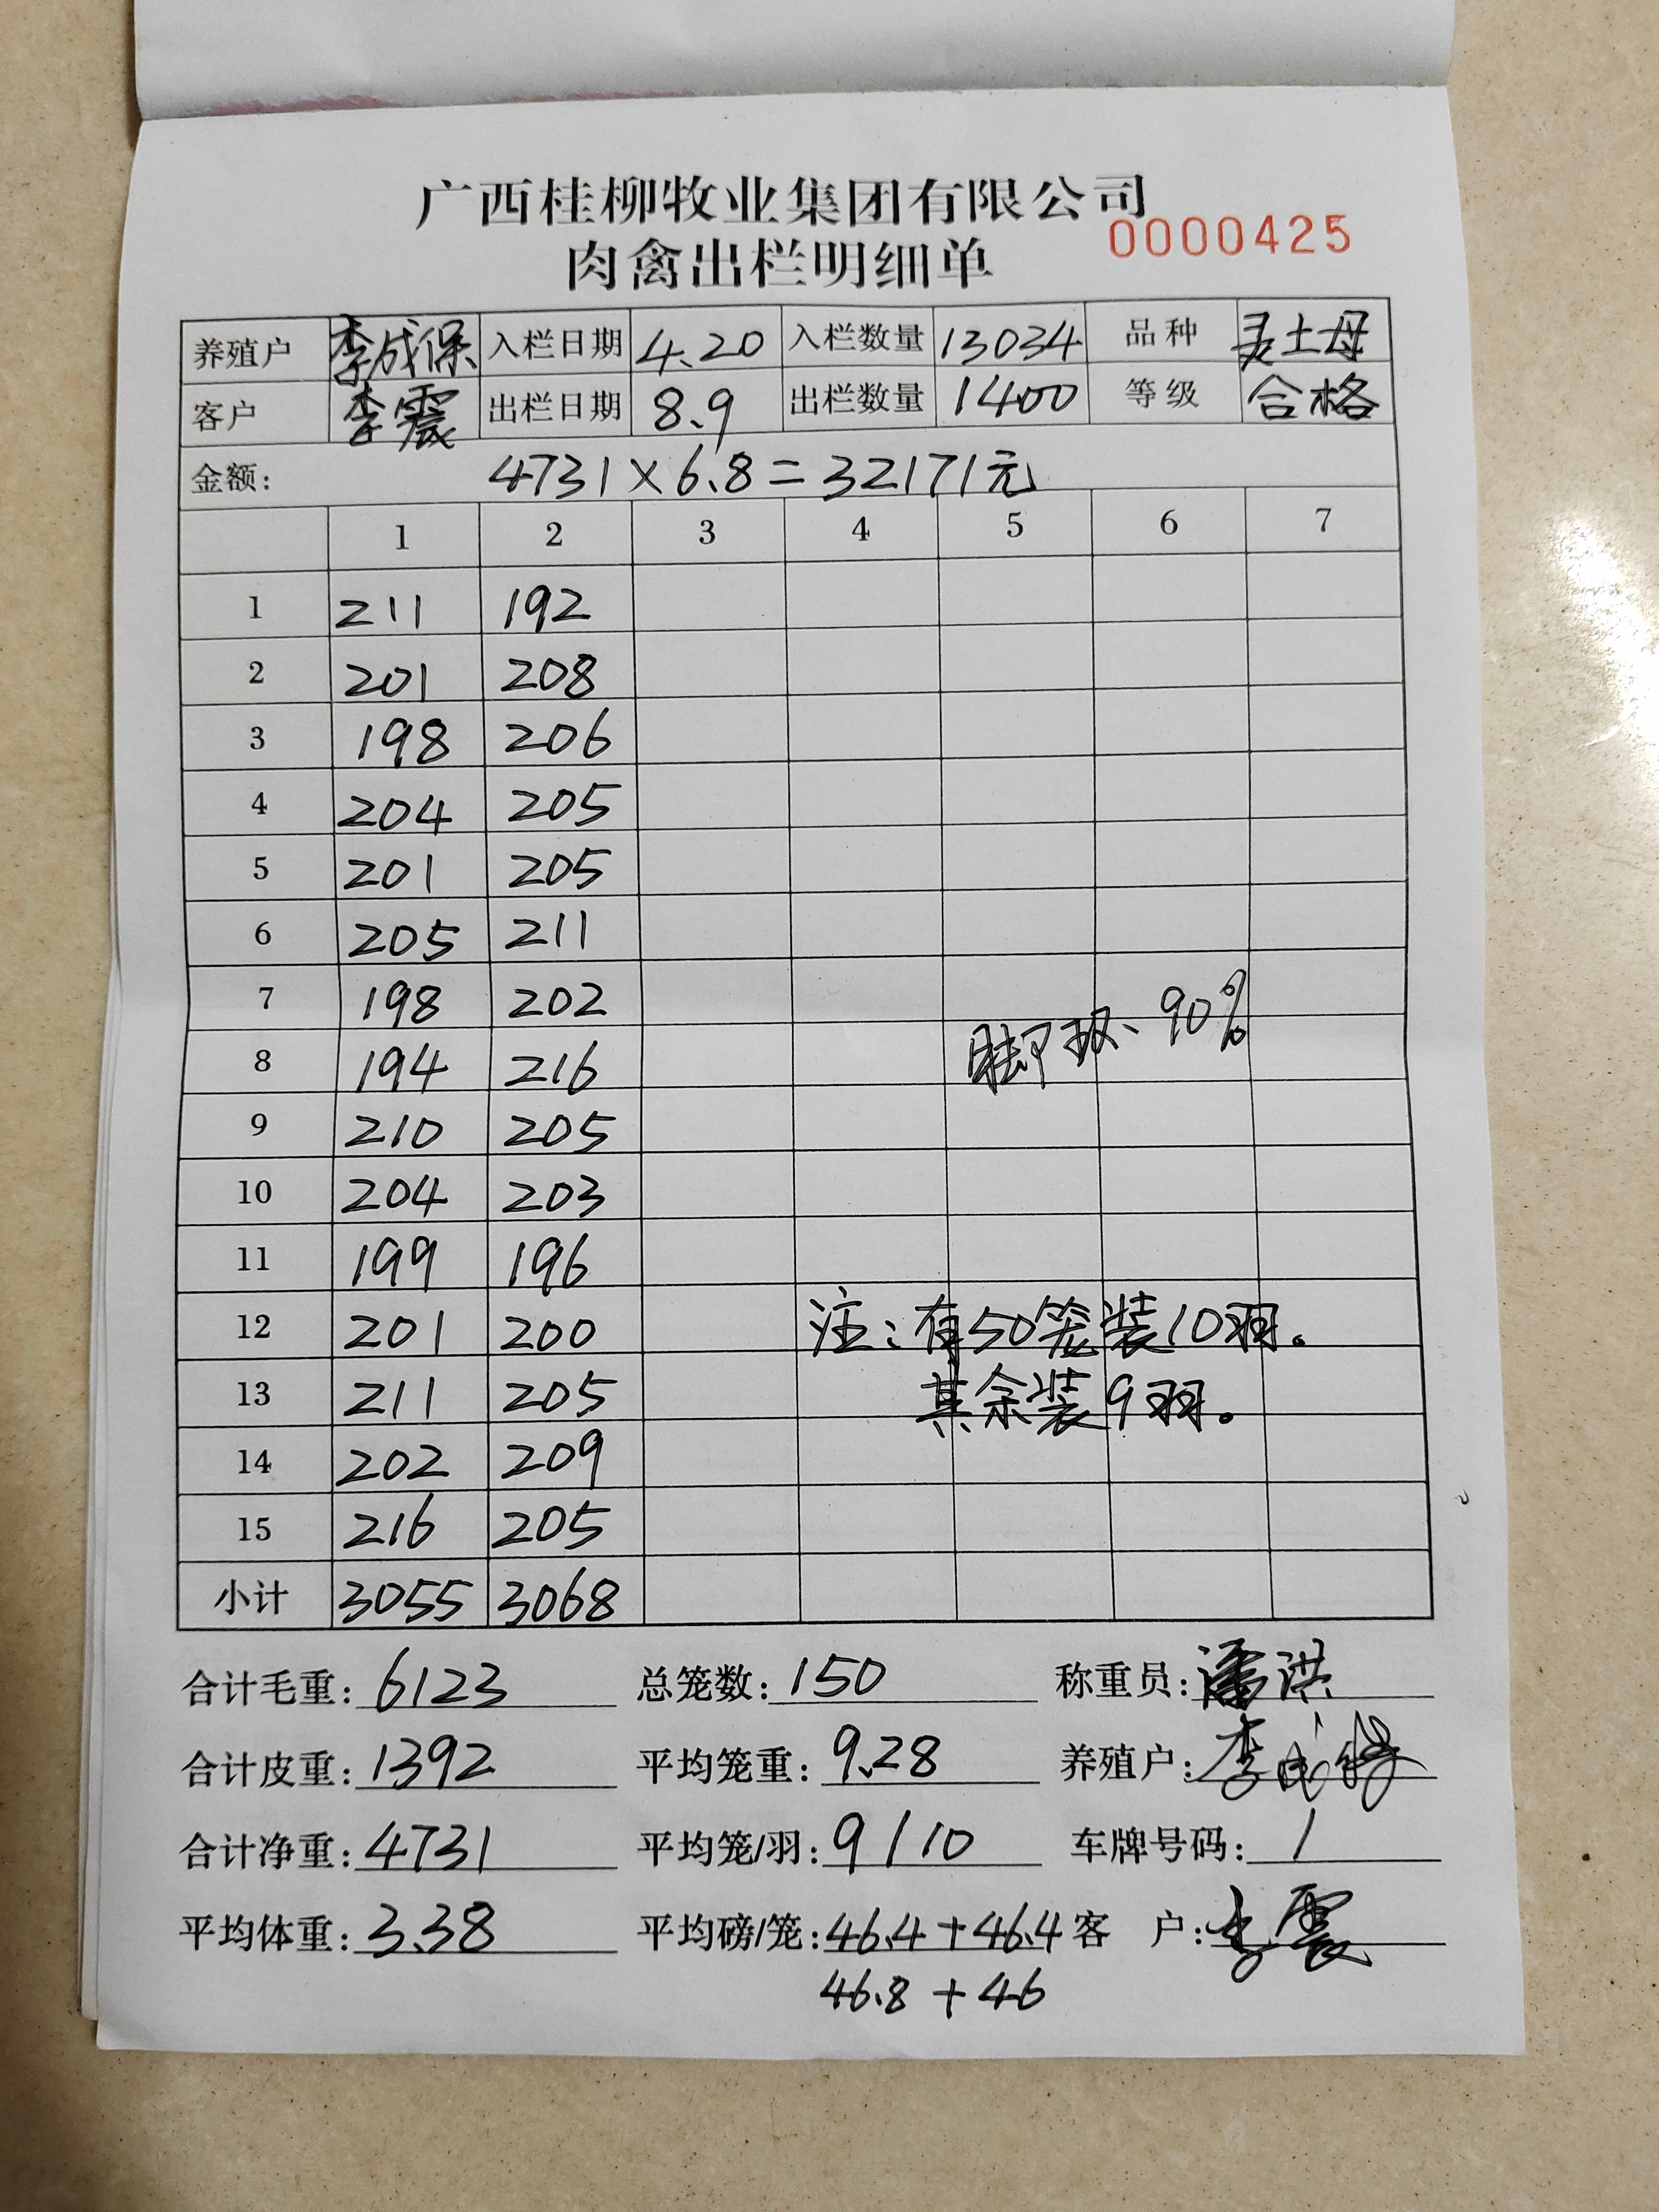 广西桂柳牧业集团有限公司
0000425
肉禽出栏明细单
养殖户 李成保 入栏日期 4.20 入栏数量 13034 品种 麦土母
客户 李震 出栏日期 8.9 出栏数量 1400 等级 合格
金额: 4731×6.8=32171元
1 2 3 4 5 6 7
1 211 192
2 201 208
3 198 206
4 204 205
5 201 205
6 205 211
7 198 202
脚环、90%
8 194 216
9 210 205
10 204 203
11 199 196
12 201 200 注:有50笼装10羽。
13 211 205 其余装9羽。
14 202 209
15 216 205
小计 3055 3068
合计毛重: 6123 总笼数: 150 称重员: 潘洪
合计皮重: 1392 平均笼重: 9.28 养殖户: 李成保
合计净重: 4731 平均笼/羽: 9/10 车牌号码: 1
平均体重: 3.38 平均磅/笼: 46.4+46.4 客 户: 李震
46.8+46